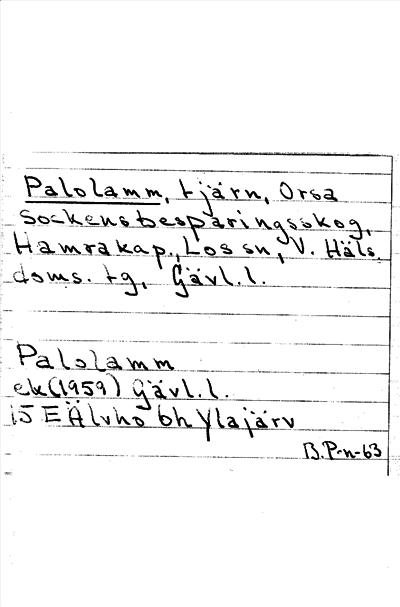 Palolamm, tjärn, Orsa
Sockensbesparingsskog,
Hamrakap., Los sn, V. Häls.
doms. tg, Gävl.l.
Palolamm
ek(1959) Gävl.l.
15 E Älvho bh Ylajärv
B.P-n-63